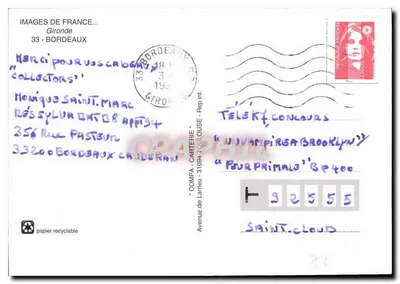 IMAGES DE FRANCE...
Gironde
33 - BORDEAUX
MERCI POUR VOS CADEAUX
"COLLECTORS"
MONIQUE SAINT. MARC
RÉS SYLVA BAT B8 APPT 34
356 RUE PASTEUR
33200 BORDEAUX CAUDERAN
papier recyclable
" COMPA - CARTERIE "
Avenue de Larrieu - 31094 TOULOUSE - Rep.int.
33 BORDEAUX
GIRONDE
TÉLÉ K7 CONCOURS
"UN VAMPIRE A BROOKLYN"
"POUR PRIMALE" BP 400
T 92555
SAINT. CLOUD